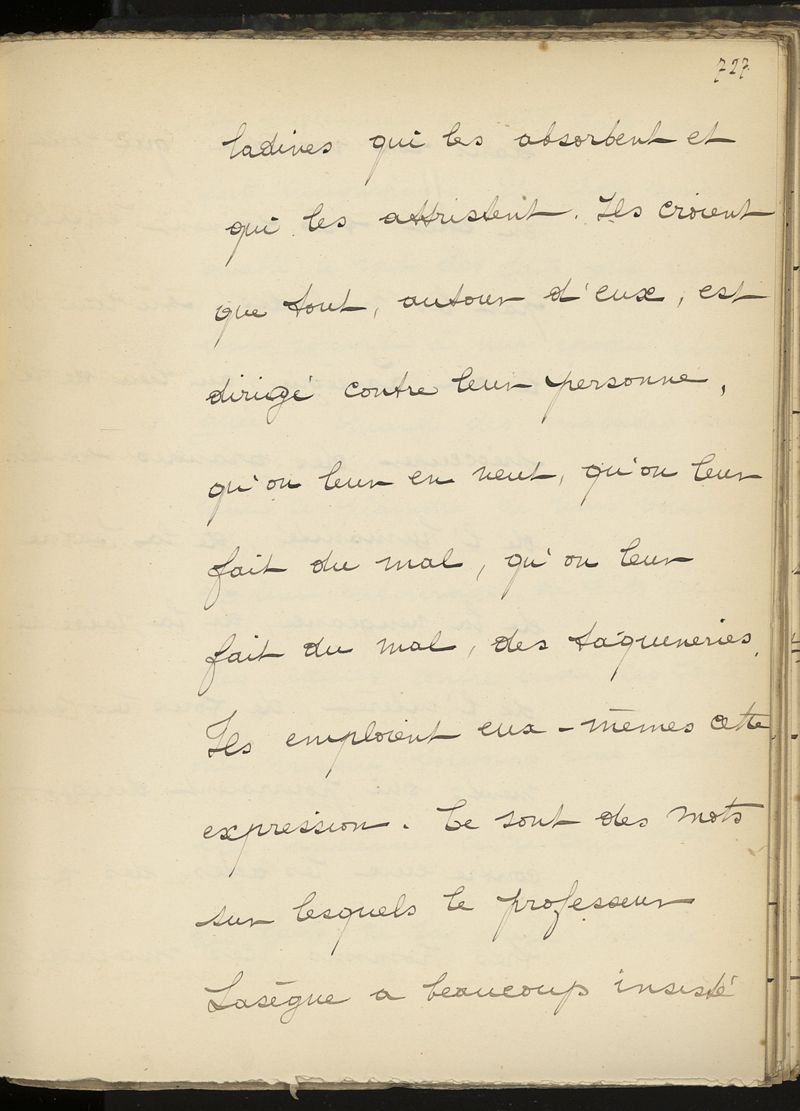 727
ladives qui les absorbent et
qui les attristent. Ils croient
que tout, autour d'eux, est
dirigé contre leur personne,
qu'on leur en veut, qu'on leur
fait du mal, qu'on leur
fait du mal, des taquineries.
Ils emploient eux-mêmes cette
expression. Ce sont des mots
sur lesquels le professeur
Lasègue a beaucoup insisté